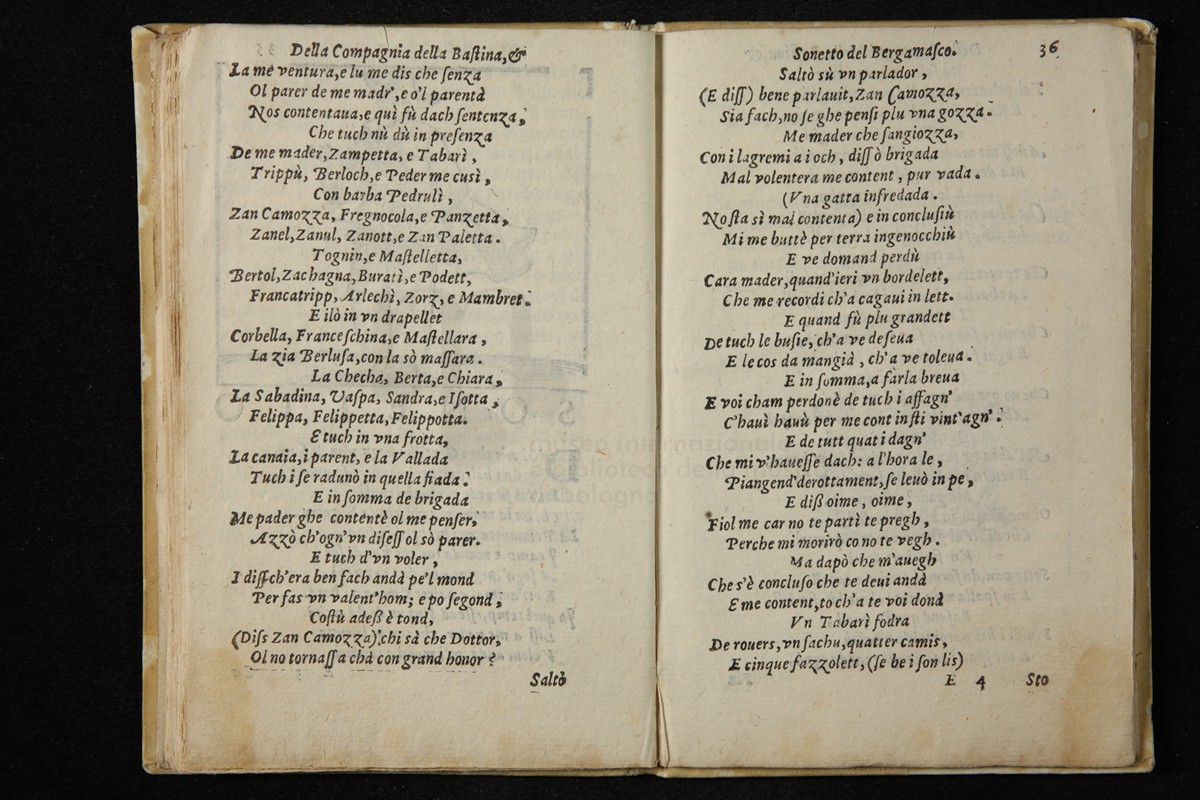 Della Compagnia della Baſtina, &
La me ventura, e lu me dis che ſenza
Ol parer de me madr', e o'l parentà
Nos contentaua, e quì fù dach ſentenza,
Che tuch nù dù in preſenza
De me mader, Zampetta, e Tabarì,
Trippù, Berloch, e Peder me cusì,
Con barba Pedrulì,
Zan Camozza, Fregnocola, e Panzetta,
Zanel, Zanul, Zanott, e Zan Paletta.
Tognin, e Maſtelletta,
Bertol, Zachagna, Buratì, e Podett,
Francatripp, Arlechì, Zorz, e Mambret.
E ilò in vn drapellet
Corbella, Franceſchina, e Maſtellara,
La zia Berluſa, con la sò maſſara.
La Checha, Berta, e Chiara,
La Sabadina, Vaſpa, Sandra, e Iſotta,
Felippa, Felippetta, Felippotta.
E tuch in vna frotta,
La canaia, i parent, e la Vallada
Tuch i ſe radunò in quella fiada.
E in ſomma de brigada
Me pader ghe contentè ol me penſer,
Azzò ch'ogn'vn diſeſſ ol sò parer.
E tuch d'vn voler,
I diſſ ch'era ben fach andà pe'l mond
Per fas vn valent'hom; e po ſegond,
Coſtù adeß è tond,
(Diſs Zan Camozza) chi sà che Dottor,
Ol no tornaſſ a chà con grand honor?
Saltò
Sonetto del Bergamaſco. 36
Saltò sù vn parlador,
(E diſſ) bene parlauit, Zan Camozza,
Sia fach, no ſe ghe penſi plu vna gozza.
Me mader che ſangiozza,
Con i lagremi a i och, diſſ ò brigada
Mal volentera me content, pur vada.
(Vna gatta infredada.
No ſta sì mal contenta) e in concluſiù
Mi me buttè per terra ingenocchiù
E ve domand perdù
Cara mader, quand'ieri vn bordelett,
Che me recordi ch'a cagaui in lett.
E quand fù plu grandett
De tuch le buſie, ch'a ve deſeua
E le cos da mangià, ch'a ve toleua.
E in ſomma, a farla breua
E voi cham perdonè de tuch i affagn'
C'hauì hauù per me cont in ſti vint'agn'.
E de tutt quat i dagn'
Che mi v'haueſſe dach: a l'hora le,
Piangend' derottament, ſe leuò in pe,
E diß oime, oime,
Fiol me car no te partì te pregh,
Perche mi morirò co no te vegh.
Ma dapò che m'auegh
Che s'è concluſo che te deui andà
E me content, to ch'a te voi donà
Vn Tabarì fodra
De rouers, vn ſachu, quatter camis,
E cinque fazzolett, (ſe be i ſon lis)
E 4 Sto
museo internazionale
e biblioteca de
bologna